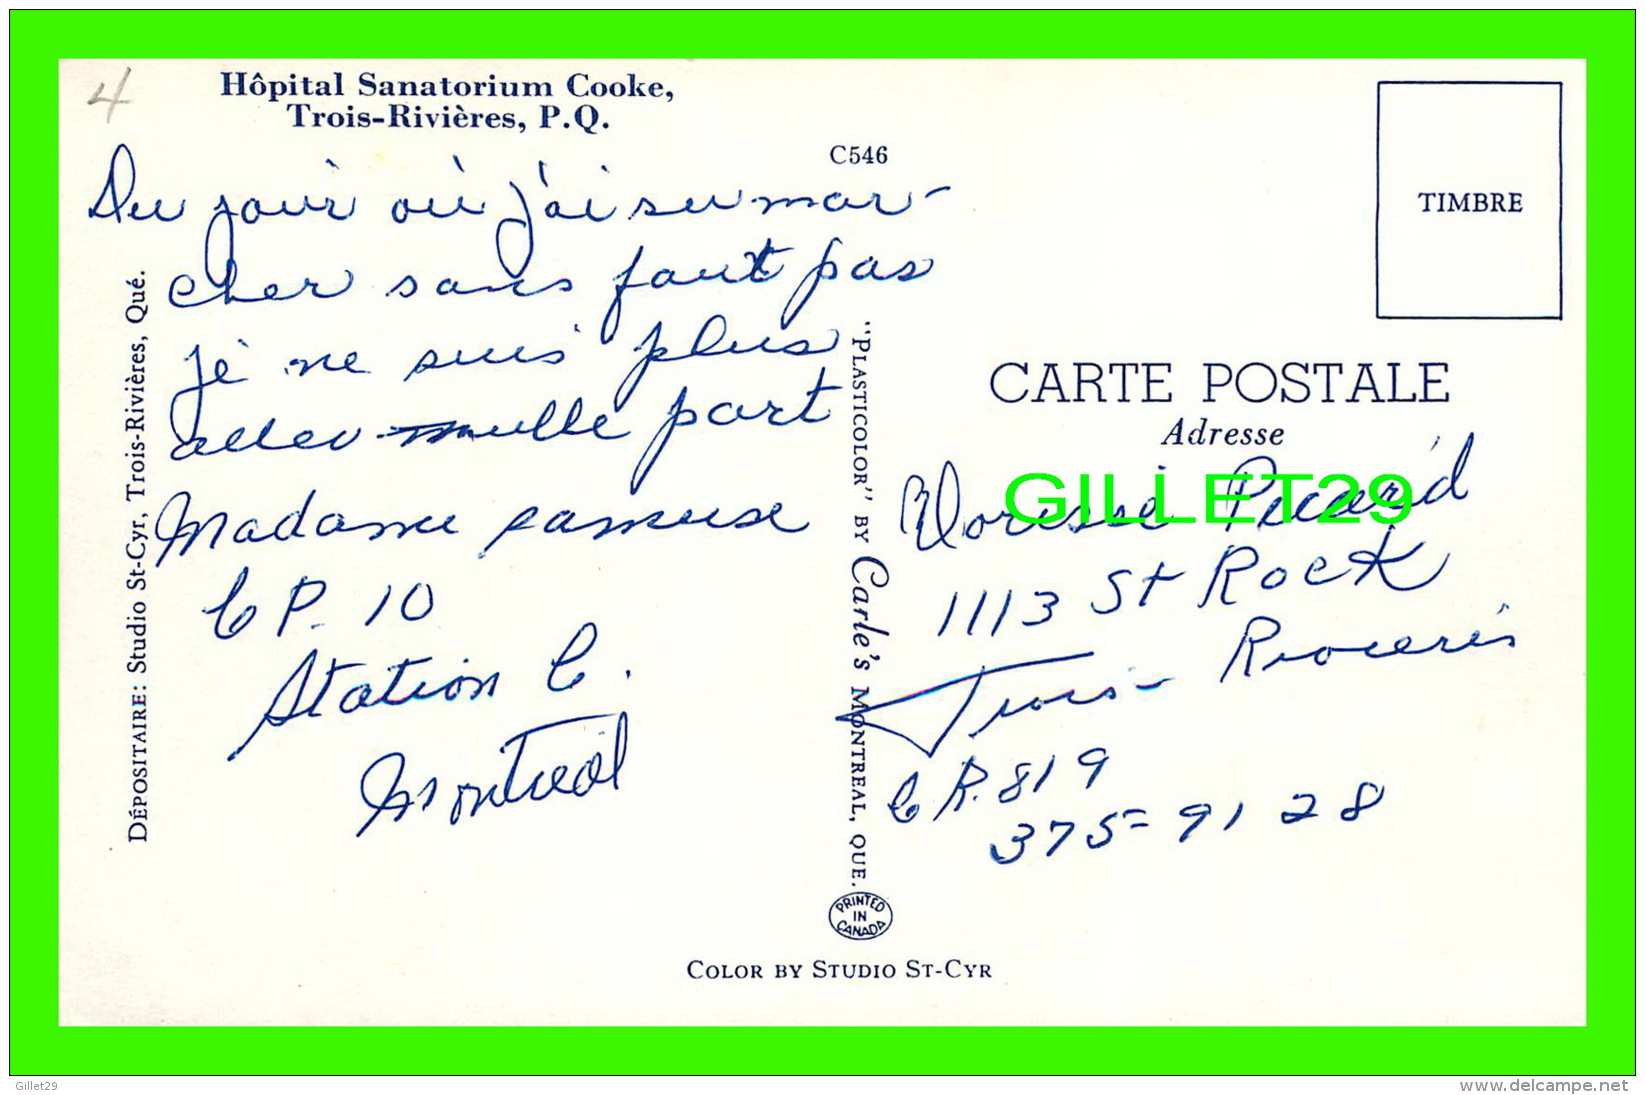 4
Hôpital Sanatorium Cooke,
Trois-Rivières, P.Q.
C546
Du jour où j'ai su mar-
cher sans faut pas
je ne suis plus
aller nulle part
Madame samuse
C P. 10
Station C.
Montreal
DÉPOSITAIRE: Studio St-Cyr, Trois-Rivières, Qué.
"PLASTICOLOR" BY Carle's MONTREAL, QUE.
PRINTED IN CANADA
COLOR BY STUDIO ST-CYR
TIMBRE
CARTE POSTALE
Adresse
GILLET29
Picard
1113 St Rock
Trois-
C P. 819
375=91 28
Gillet29
www.delcampe.net